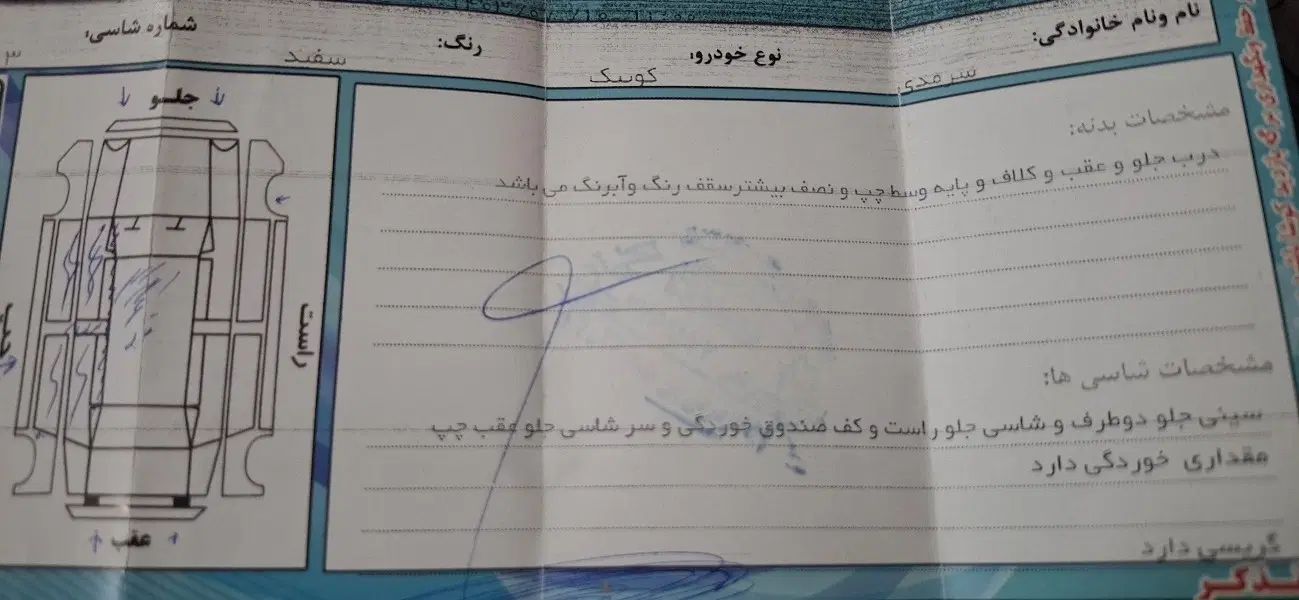 نام ونام خانوادگی: سرمدی نوع خودرو: کوییک رنگ: سفید شماره شاسی:
مشخصات بدنه:
درب جلو و عقب و کلاف و پایه وسط چپ و نصف بیشتر سقف رنگ وآبرنگ می باشد
مشخصات شاسی ها:
سینی جلو دوطرف و شاسی جلو راست و کف صندوق خوردگی و سر شاسی جلو عقب چپ
مقداری خوردگی دارد
گریسی دارد
تذکر
جلو
راست
عقب